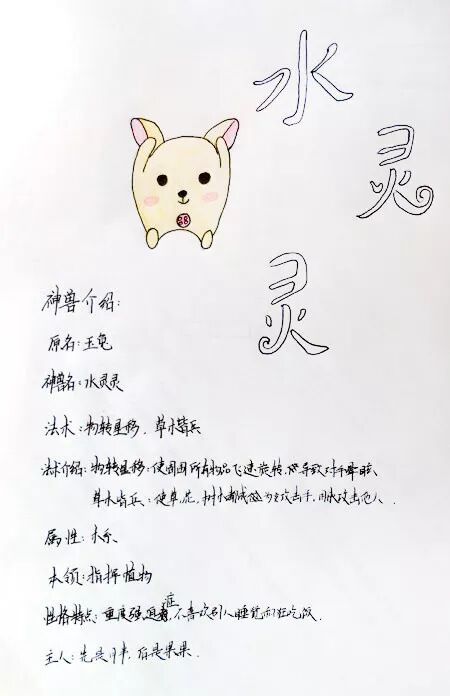 水灵灵
神兽介绍:
原名:玉兔
神兽名:水灵灵
法术:物转星移、草木皆兵
法术介绍:物转星移:使周围所有物品飞速旋转,导致对手晕眩、
草木皆兵:使草、花、树木都成为攻击手,用来攻击他人.
属性:木系
本领:指挥植物
性格特点:重度强迫症,不喜欢别人睡觉前狂吃饭.
主人:先是,后是果果.